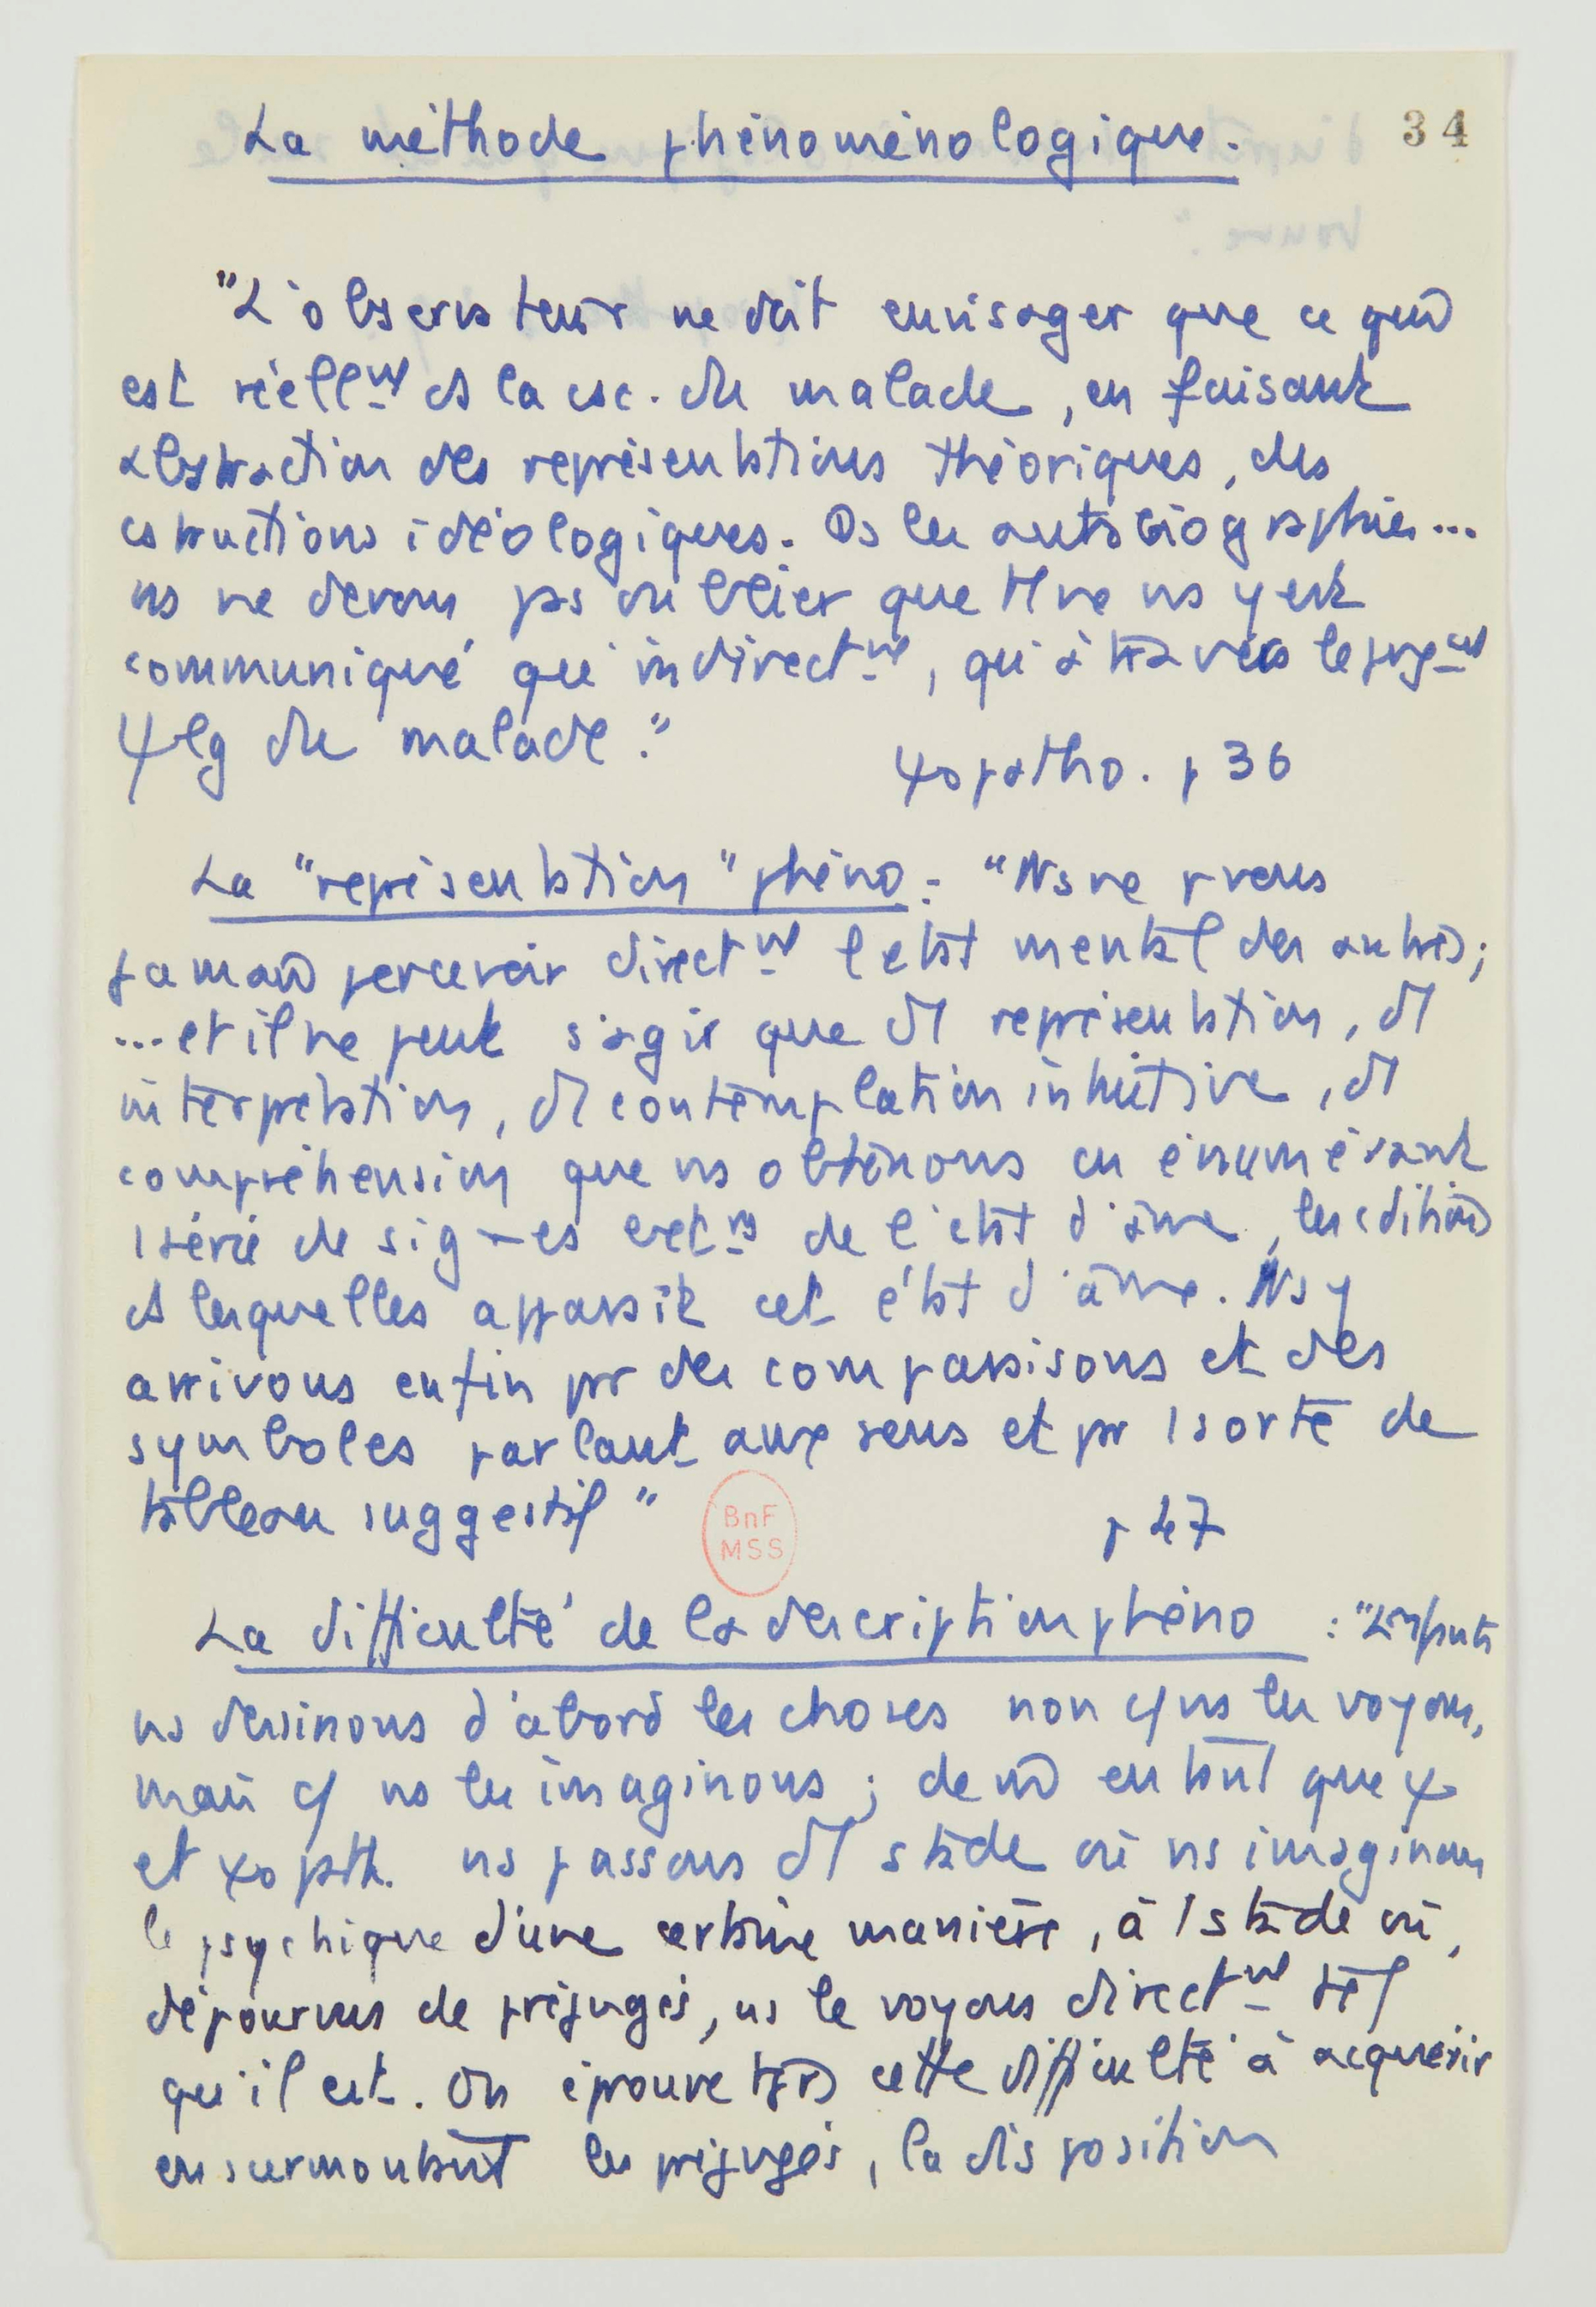 La méthode phénoménologique.
34
"L'observateur ne doit envisager que ce qui
est réellmt ds la csc. du malade, en faisant
abstraction des représentations théoriques, des
cstructions idéologiques. Ds les autobiographies...
ns ne devons pas oublier que tt ne ns y est
communiqué qu'indirectmt, qu'à travers le jugemt
ψlg du malade."
ψopatho. p 36
La "représentation" phéno : "Ns ne pvons
jamais percevoir directmt l'état mental des autres;
...et il ne peut s'agir que de représentation, de
interprétation, de contemplation intuitive, de
compréhension que ns obtenons en énumérant
1 série de signes de l'état d'âme, les cditions
ds lesquelles apparaît cet état d'âme. Ns y
arrivons enfin pr des comparaisons et des
symboles parlant aux sens et pr 1 sorte de
tableau suggestif"
BnF
MSS
p 47
La difficulté de la description phéno : "
ns dessinons d'abord les choses non c/ ns les voyons,
mais c/ ns les imaginons ; de m en tant que ψo
et ψo path. ns passons de stade où ns imaginons
le psychique d'une certaine manière, à 1 stade où,
dépourvus de préjugés, ns le voyons directmt tel
qu'il est. On éprouve tjrs cette difficulté à acquérir
en surmontant les préjugés, la disposition